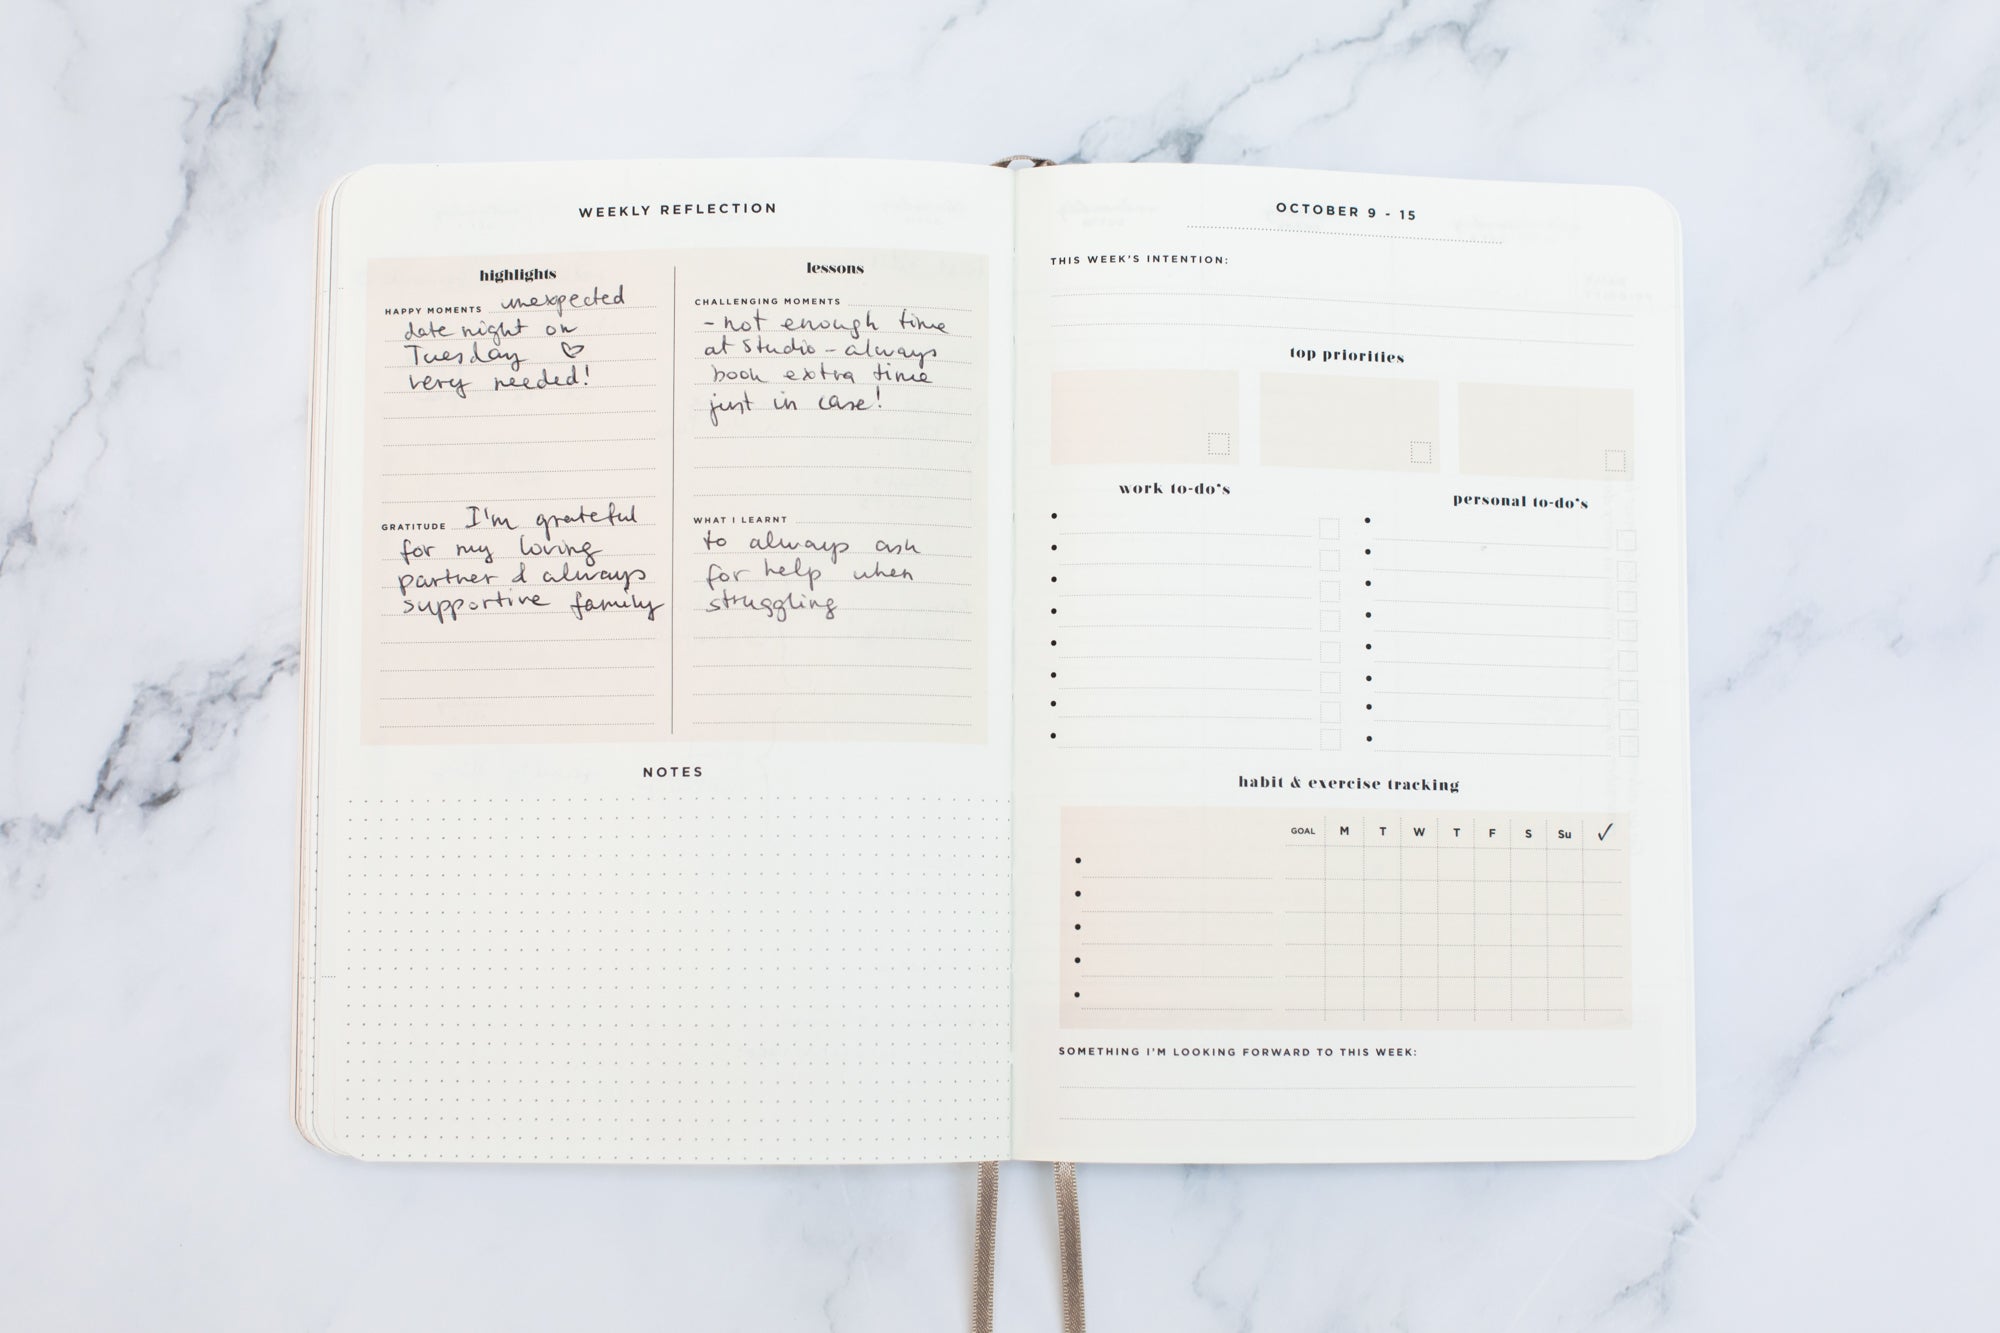 WEEKLY REFLECTION
highlights
HAPPY MOMENTS unexpected
date night on
Tuesday ♡
very needed!
GRATITUDE I'm grateful
for my loving
partner & always
supportive family
lessons
CHALLENGING MOMENTS
- not enough time
at studio - always
book extra time
just in case!
WHAT I LEARNT
to always ask
for help when
struggling
NOTES
OCTOBER 9 - 15
THIS WEEK'S INTENTION:
top priorities
work to-do's
personal to-do's
habit & exercise tracking
GOAL M T W T F S Su ✓
SOMETHING I'M LOOKING FORWARD TO THIS WEEK: